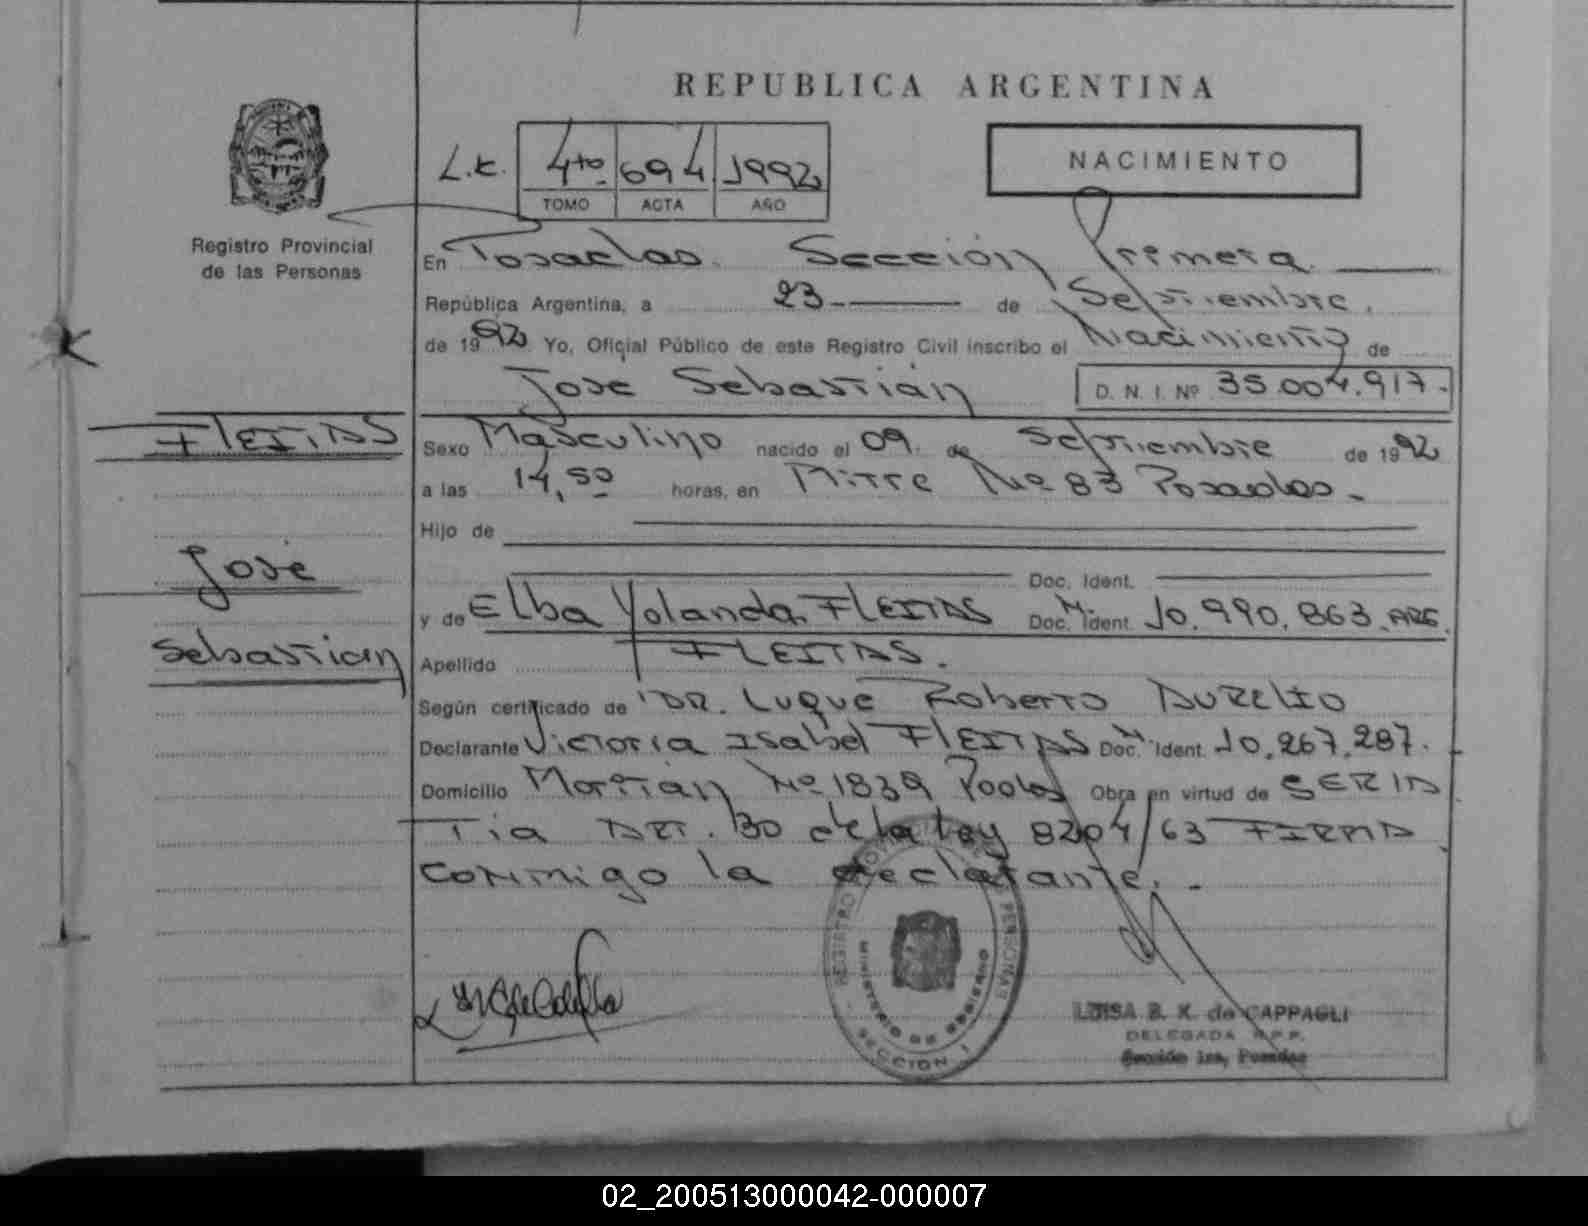 REPUBLICA ARGENTINA
NACIMIENTO
L.K. 4to. 694 1992
TOMO ACTA AÑO
Registro Provincial
de las Personas
En Posadas. Sección Primera
República Argentina, a 23 de Septiembre.
de 1992 Yo, Oficial Público de este Registro Civil inscribo el Nacimiento de
José Sebastián D. N. I. Nº 35.004.917.
FLEITAS
José
Sebastian
Sexo Masculino nacido el 09. de Septiembre de 1992
a las 14,50 horas, en Mitre Nº 83 Posadas.
Hijo de
Doc. Ident.
y de Elba Yolanda FLEITAS Doc. Ident. M. 10.990.863. ARG.
Apellido FLEITAS.
Según certificado de DR. Luque Roberto AURELIO
Declarante Victoria Isabel FLEITAS Doc. Ident. 10.267.287.
Domicilio Nº 1839 Obra en virtud de SER LA
Tia ART. 30 de la ley 8204/63 FIRMA
conmigo la declarante.
REGISTRO PERSONAS
MINISTERIO DE GOBIERNO
SECCION 1
LUISA B. K. de CAPPAGLI
DELEGADA R.P.P.
Sección 1ra, Posadas
02_200513000042-000007